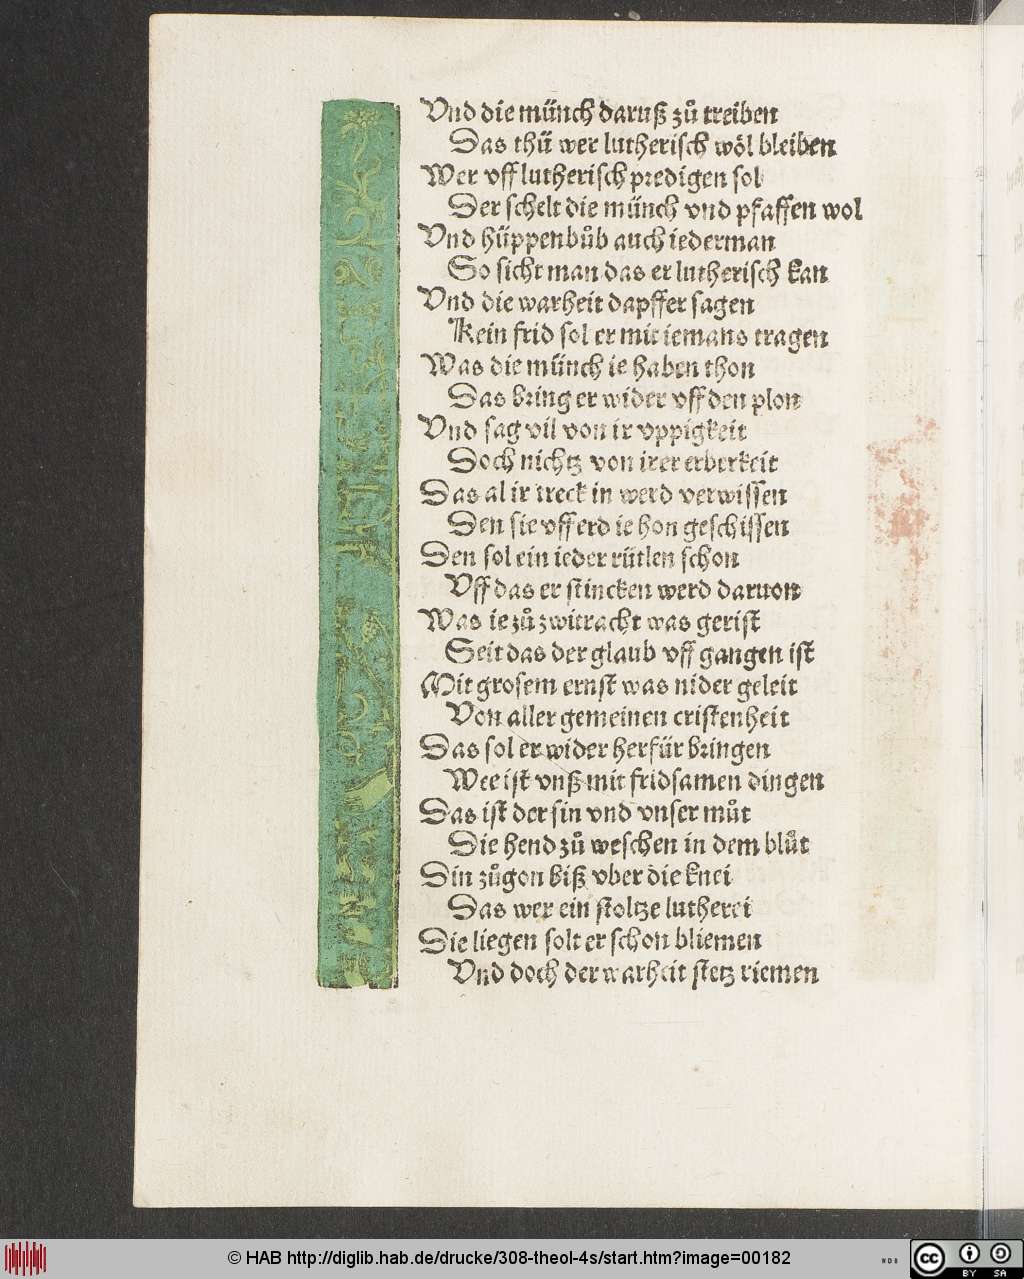 Vnd die münch daruß zů treiben
Das thü wer lutherisch wöl bleiben
Wer vff lutherisch predigen sol
Der schelt die münch vnd pfaffen wol
Vnd hüppenbůb auch iederman
So sicht man das er lutherisch kan
Vnd die warheit dapffer sagen
Kein frid sol er mit iemans tragen
Was die münch ie haben thon
Das bring er wider vff den plon
Vnd sag vil von ir vppigkeit
Doch nichtz von irer erberkeit
Das al ir treck in werd verwissen
Den sie vff erd ie hon geschissen
Den sol ein ieder rütlen schon
Vff das er stincken werd daruon
Was ie zů zwitracht was gerist
Seit das der glaub vff gangen ist
Mit grosem ernst was nider geleit
Von aller gemeinen cristenheit
Das sol er wider herfür bringen
Wee ist vnß mit fridsamen dingen
Das ist der sin vnd vnser můt
Die hend zů weschen in dem blůt
Din zůgon biß vber die knei
Das wer ein stoltze lutherei
Die liegen solt er schon bliemen
Vnd doch der warheit stetz riemen
© HAB http://diglib.hab.de/drucke/308-theol-4s/start.htm?image=00182
WDB
cc BY SA